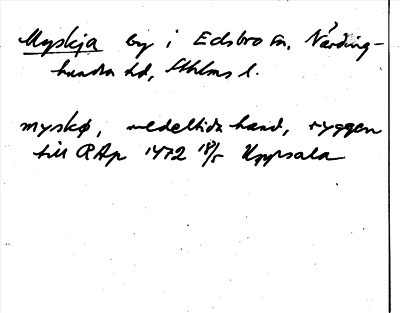 Myskja by i Edsbro sn, Närding-
hundra hd, Sthlms l.
myskø, medeltida hand, ryggen
till RAp 1472 18/5 Uppsala